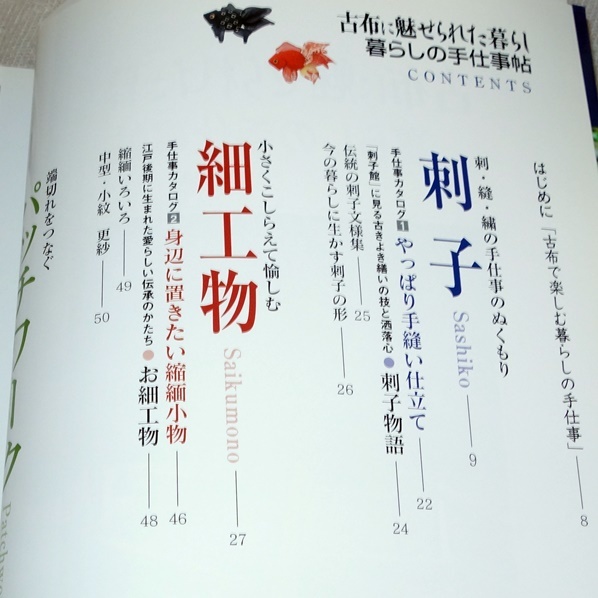 古布に魅せられた暮らし
暮らしの手仕事帖
CONTENTS
はじめに「古布で楽しむ暮らしの手仕事」 8
刺・縫・繍の手仕事のぬくもり
刺子 Sashiko 9
手仕事カタログ1 やっぱり手縫い仕立て 22
「刺子館」に見る古きよき繕いの技と洒落心●刺子物語 24
伝統の刺子文様集 25
今の暮らしに生かす刺子の形 26
小さくこしらえて愉しむ
細工物 Saikumono 27
手仕事カタログ2 身辺に置きたい縮緬小物 46
江戸後期に生まれた愛らしい伝承のかたち●お細工物 48
縮緬いろいろ 49
中型・小紋 更紗 50
端切れをつなぐ
パッチワーク